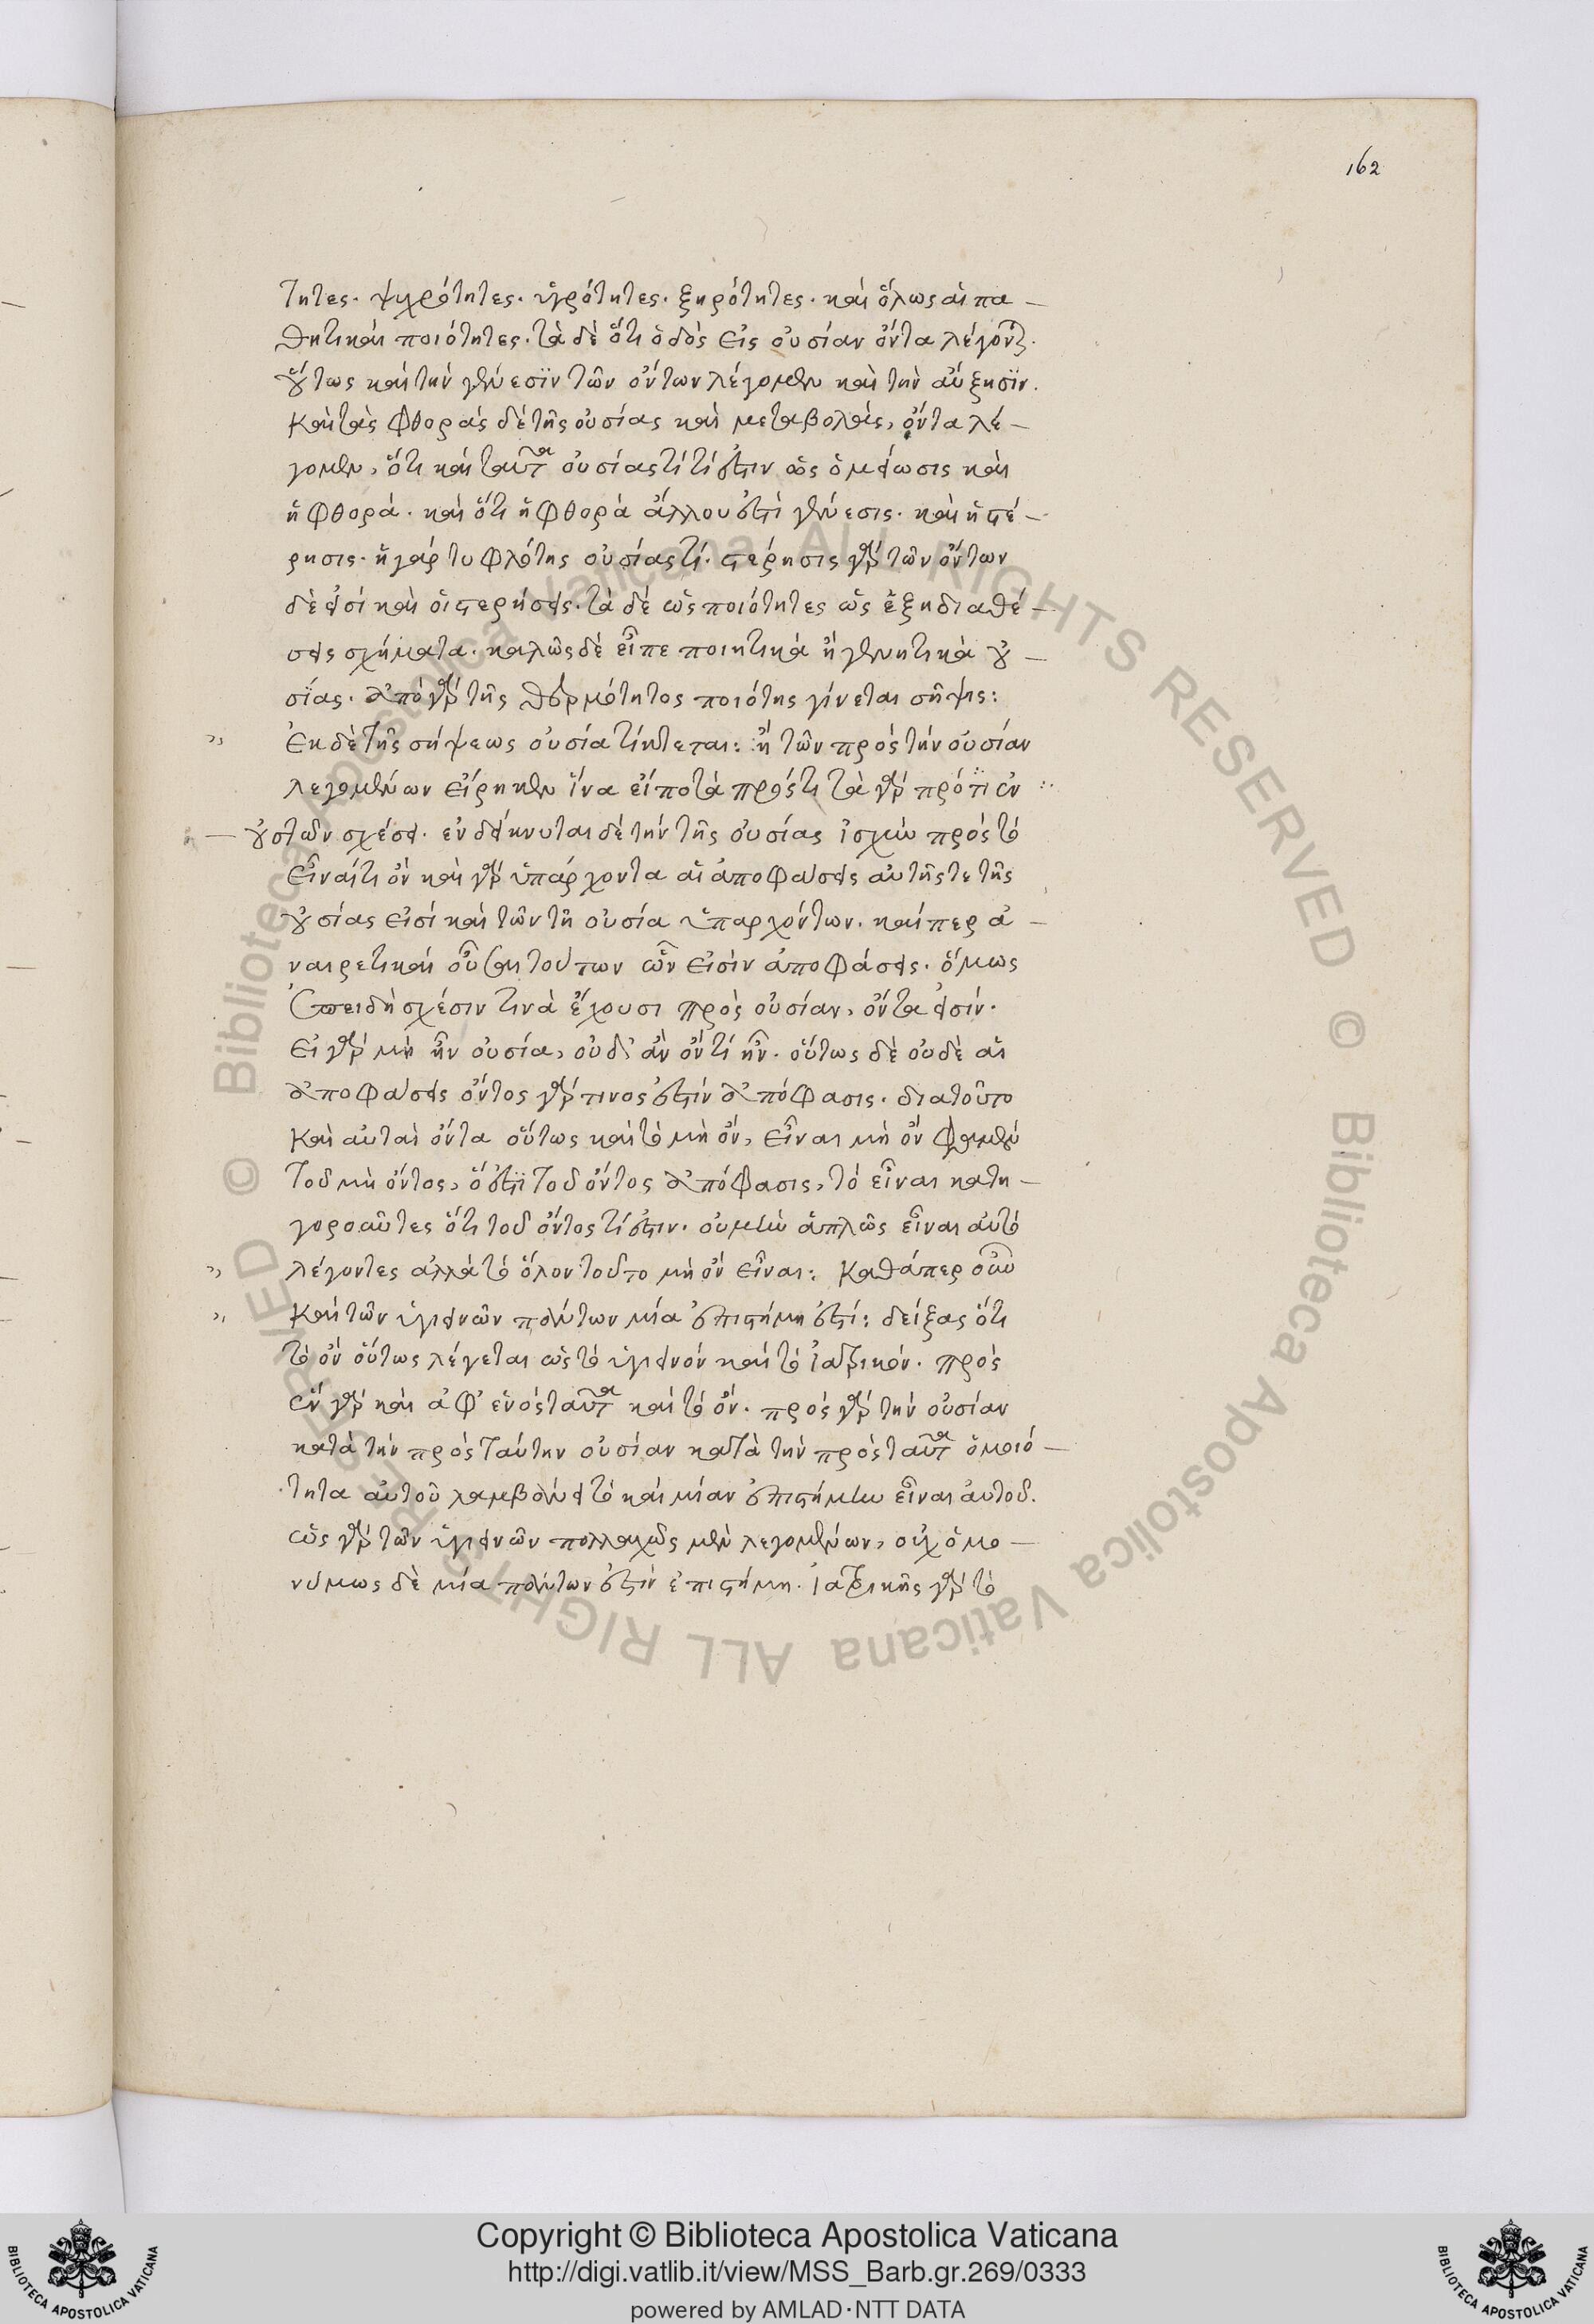 162
τητες. ψυχρότητες. ὑγρότητες. ξηρότητες. καὶ ὅλως αἱ πα –
θητικαὶ ποιότητες. τὰ δὲ ὅτι ὁδὸς εἰς οὐσίαν ὄντα λέγονται.
οὕτως καὶ τὴν γένεσϊν τῶν ὄντων λέγομεν καὶ τὴν αὔξησϊν.
καὶ τὰς φθορὰς δὲ τῆς οὐσίας καὶ μεταβολὰς, ὄντα λέ –
γομεν, ὅτι καὶ ταῦτα οὐσίας τί τί ἐστιν ὡς ὁ μείωσις καὶ
ἡ φθορά. καὶ ὅτι ἡ φθορὰ ἄλλου ἐστὶ γένεσις. καὶ ἡ στέ –
ρησις. ἡ γάρ τυφλότης οὐσίας τί. στέρησις γὰρ τῶν ὄντων
δὲ εἰσὶ καὶ οἱ στερήσεις. τὰ δὲ ὡς ποιότητες ὡς ἕξη διαθέ –
σεις σχήματα. καλῶς δὲ εἶπε ποιητικὰ ἢ γεννητικὰ οὐ –
σίας. ἀπὸ γὰρ τῆς θερμότητος ποιότης γίνεται σῆψις:
ἐκ δὲ τῆς σήψεως οὐσία τίκτεται: ἢ τῶν πρὸς τὴν οὐσίαν
λεγομένων εἴρηκεν ἵνα εἴπο τὰ πρός τι τὰ γὰρ πρός τι ἐν
– οὐσιῶν σχέσει. ἐνδείκνυται δὲ τὴν τῆς οὐσίας ἰσχὺν πρὸς τὸ
εἶναί τι ὂν καὶ γὰρ ὑπάρχοντα αἱ ἀποφάσεις αὐτῆς τε τῆς
οὐσίας εἰσὶ καὶ τῶν τῆ οὐσία ὑπαρχόντων. καίπερ ἀ –
ναιρετικαὶ οὖσαι τούτων ὧν εἰσὶν ἀποφάσεις. ὅμως
ἐπειδὴ σχέσιν τινὰ ἔχουσι πρὸς οὐσίαν, ὄντα εἰσίν.
εἰ γὰρ μὴ ἦν οὐσία, οὐδ' ἂν ὄν τί ἦν. οὕτως δὲ οὐδὲ αἱ
ἀποφάσεις ὄντος γὰρ τινος ἐστὶν ἀπόφασις. διατοῦτο
καὶ αὐταὶ ὄντα οὕτως καὶ τὸ μὴ ὄν, εἶναι μὴ ὄν φαμὲν
τοῦ μὴ ὄντος, ὅ ἐστϊ τοῦ ὄντος ἀπόφασις, τὸ εἶναι κατη –
γοροῦντες ὅτι τοῦ ὄντος τί ἐστιν. οὐ μὴν ἁπλῶς εἶναι αὐτὸ
λέγοντες ἀλλὰ τὸ ὅλον τοῦτο μὴ ὂν εἶναι: καθάπερ οὖν
καὶ τῶν ὑγιεινῶν πάντων μία ἐπιστήμη ἐστί: δείξας ὅτι
τὸ ὂν οὕτως λέγεται ὡς τὸ ὑγιεινὸν καὶ τὸ ἰατρικόν. πρὸς
ἓν γὰρ καὶ ἀφ' ἑνὸς ταῦτα καὶ τὸ ὄν. πρὸς γὰρ τὴν οὐσίαν
κατὰ τὴν πρὸς ταύτην οὐσίαν κατὰ τὴν πρὸς ταῦτα ὁμοιό –
τητα αὐτοῦ λαμβάνει τὸ καὶ μίαν ἐπιστήμην εἶναι αὐτοῦ.
ὡς γὰρ τῶν ὑγιεινῶν πολλαχῶς μὲν λεγομένων, οὐχ ὁμο –
νύμως δὲ μία πάντων ἐστὶν ἐπιστήμη. ἰατρικῆς γὰρ τὸ
© Biblioteca Apostolica Vaticana ALL RIGHTS RESERVED © Biblioteca Apostolica Vaticana ALL RIGHTS RESERVED
BIBLIOTECA APOSTOLICA VATICANA
Copyright © Biblioteca Apostolica Vaticana
http://digi.vatlib.it/view/MSS_Barb.gr.269/0333
powered by AMLAD·NTT DATA
BIBLIOTECA APOSTOLICA VATICANA